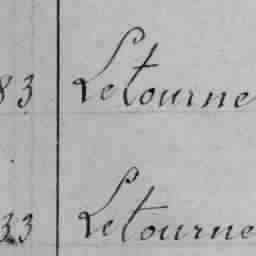 83 Letourne
33 Letourne